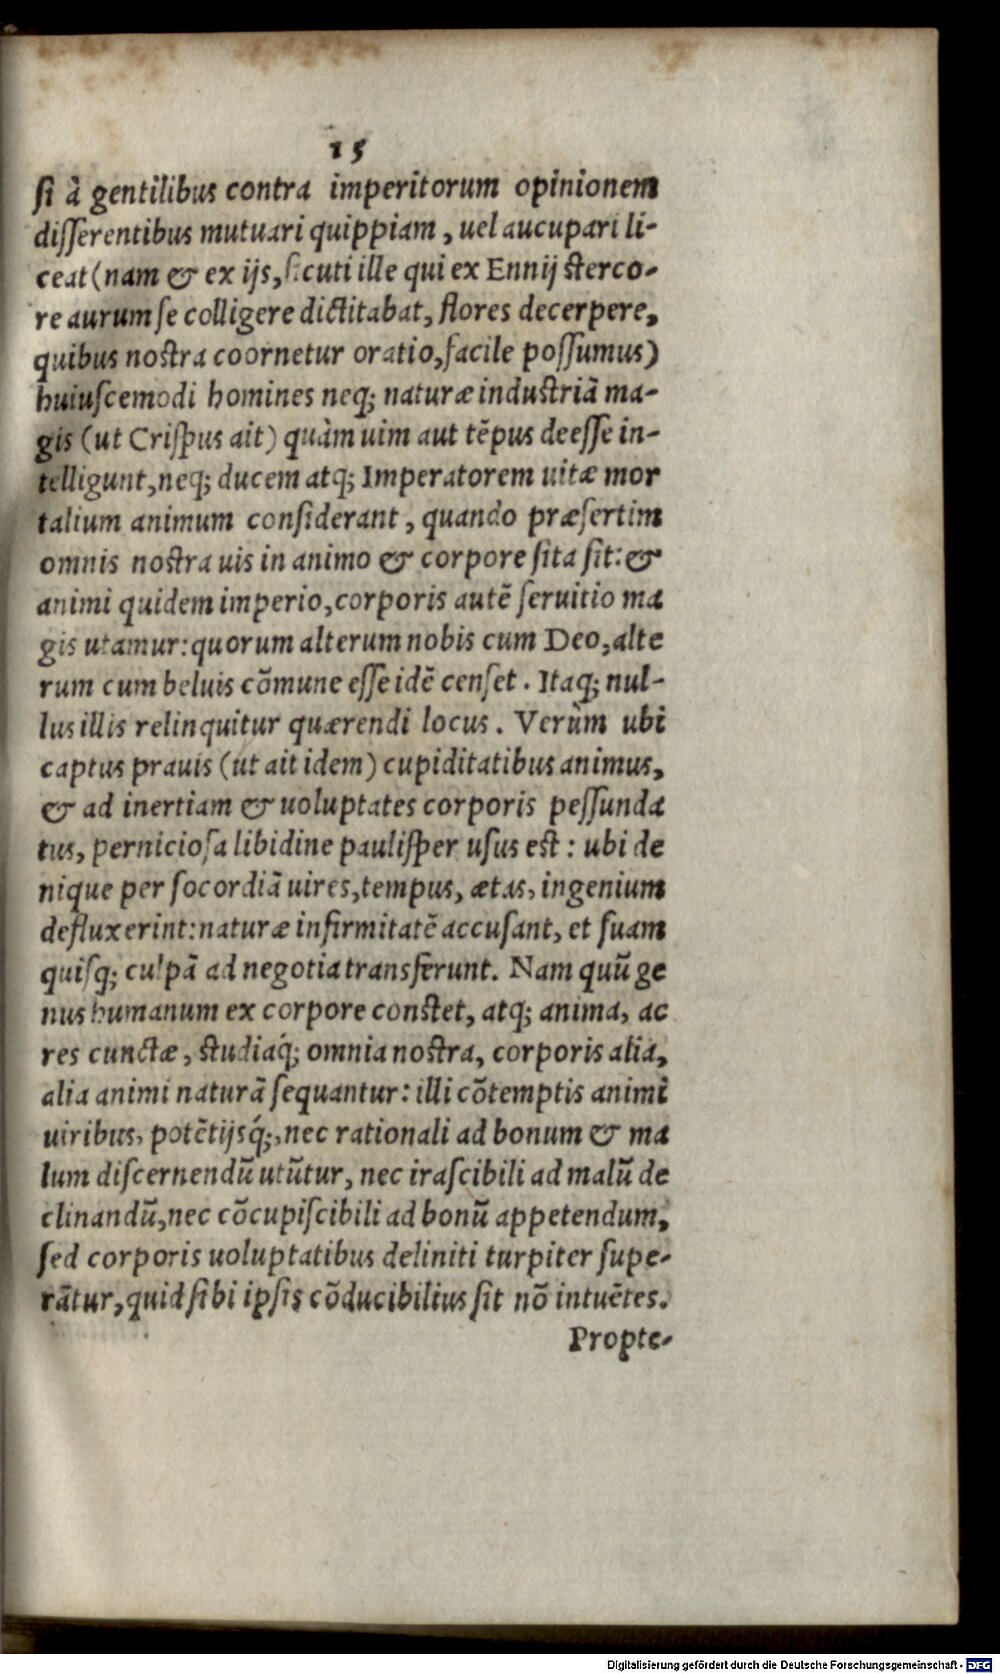 15
ſi à gentilibus contra imperitorum opinionem
diſſerentibus mutuari quippiam, uel aucupari li-
ceat (nam & ex ijs, ſicuti ille qui ex Ennij sterco-
re aurum ſe colligere dictitabat, flores decerpere,
quibus nostra coornetur oratio, facile poſſumus)
huiuſcemodi homines neq; naturæ industriã ma-
gis (ut Criſpus ait) quàm uim aut tẽpus deeſſe in-
telligunt, neq; ducem atq; Imperatorem uitæ mor
talium animum conſiderant, quando præſertim
omnis nostra uis in animo & corpore ſita ſit: &
animi quidem imperio, corporis autẽ ſeruitio ma
gis utamur: quorum alterum nobis cum Deo, alte
rum cum beluis cõmune eſſe idẽ cenſet. Itaq; nul-
lus illis relinquitur quærendi locus. Verùm ubi
captus prauis (ut ait idem) cupiditatibus animus,
& ad inertiam & uoluptates corporis peſſunda
tus, pernicioſa libidine pauliſper uſus est: ubi de
nique per ſocordiã uires, tempus, ætas, ingenium
defluxerint: naturæ infirmitatẽ accuſant, et ſuam
quiſq; culpã ad negotia transferunt. Nam quũ ge
nus humanum ex corpore constet, atq; anima, ac
res cunctæ, studiaq́; omnia nostra, corporis alia,
alia animi naturã ſequantur: illi cõtemptis animi
uiribus, potẽtijsq́;, nec rationali ad bonum & ma
lum diſcernendũ utũtur, nec iraſcibili ad malũ de
clinandũ, nec cõcupiſcibili ad bonũ appetendum,
ſed corporis uoluptatibus deliniti turpiter ſupe-
rãtur, quid ſibi ipſis cõducibilius ſit nõ intuẽtes.
Propte-
Digitalisierung gefördert durch die Deutsche Forschungsgemeinschaft - DFG